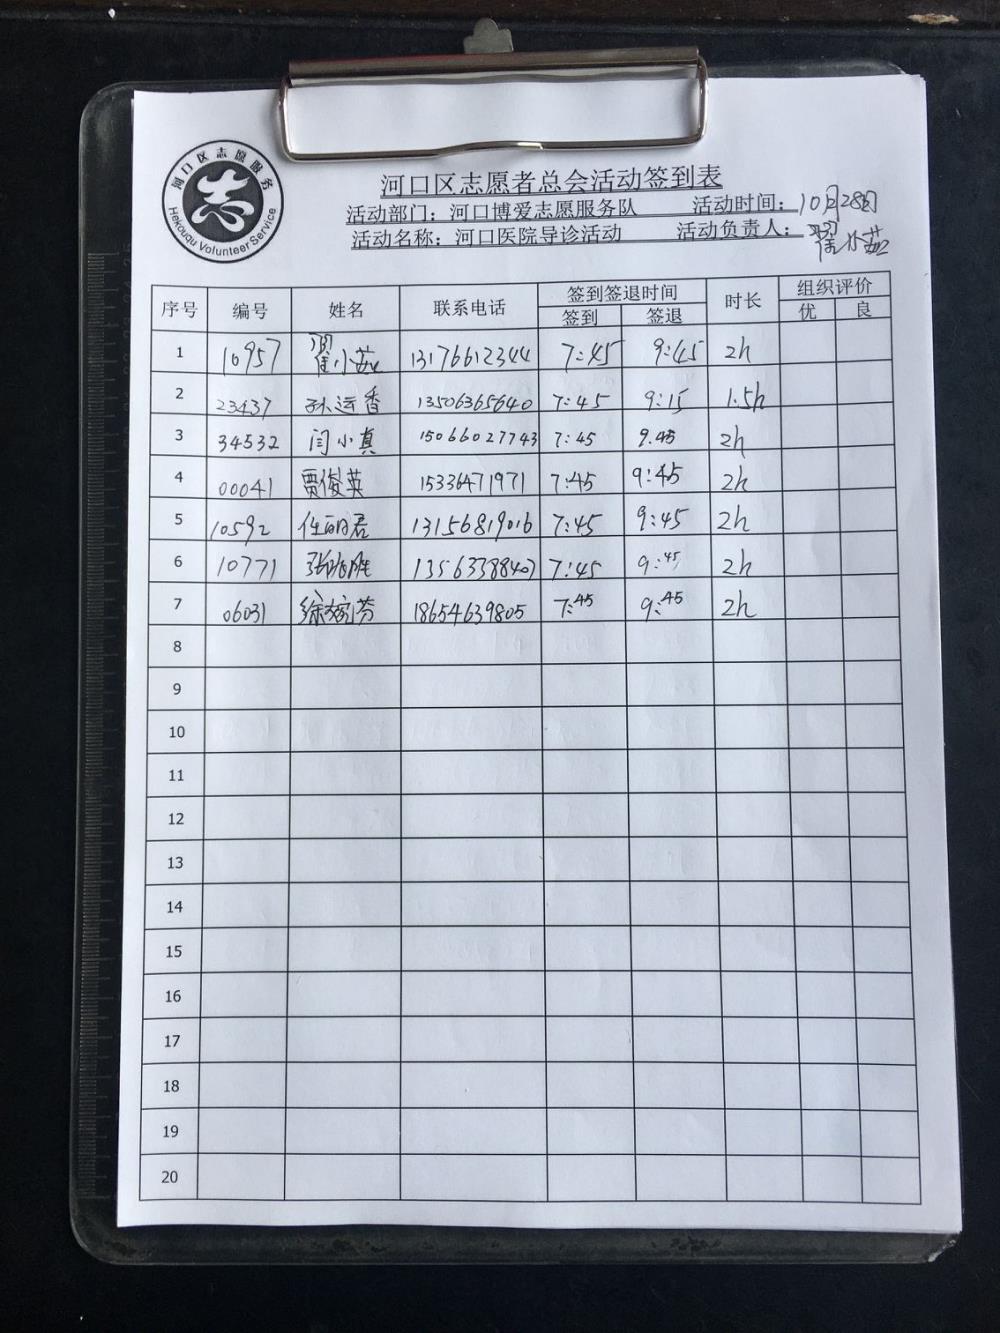 河口区志愿服务
志
Hekouqu Volunteer Service
河口区志愿者总会活动签到表
活动部门：河口博爱志愿服务队 活动时间：10月28日
活动名称：河口医院导诊活动 活动负责人：翟小茹
序号 编号 姓名 联系电话 签到签退时间 时长 组织评价
签到 签退 优 良
1 10957 翟小茹 13176612344 7:45 9:45 2h
2 23437 孙运香 13506365640 7:45 9:15 1.5h
3 34532 闫小真 15066027743 7:45 9.45 2h
4 00041 贾俊英 15336471971 7:45 9:45 2h
5 10592 任丽君 13156819016 7:45 9:45 2h
6 10771 13563388407 7:45 9:45 2h
7 06031 18654639805 7:45 9:45 2h
8
9
10
11
12
13
14
15
16
17
18
19
20